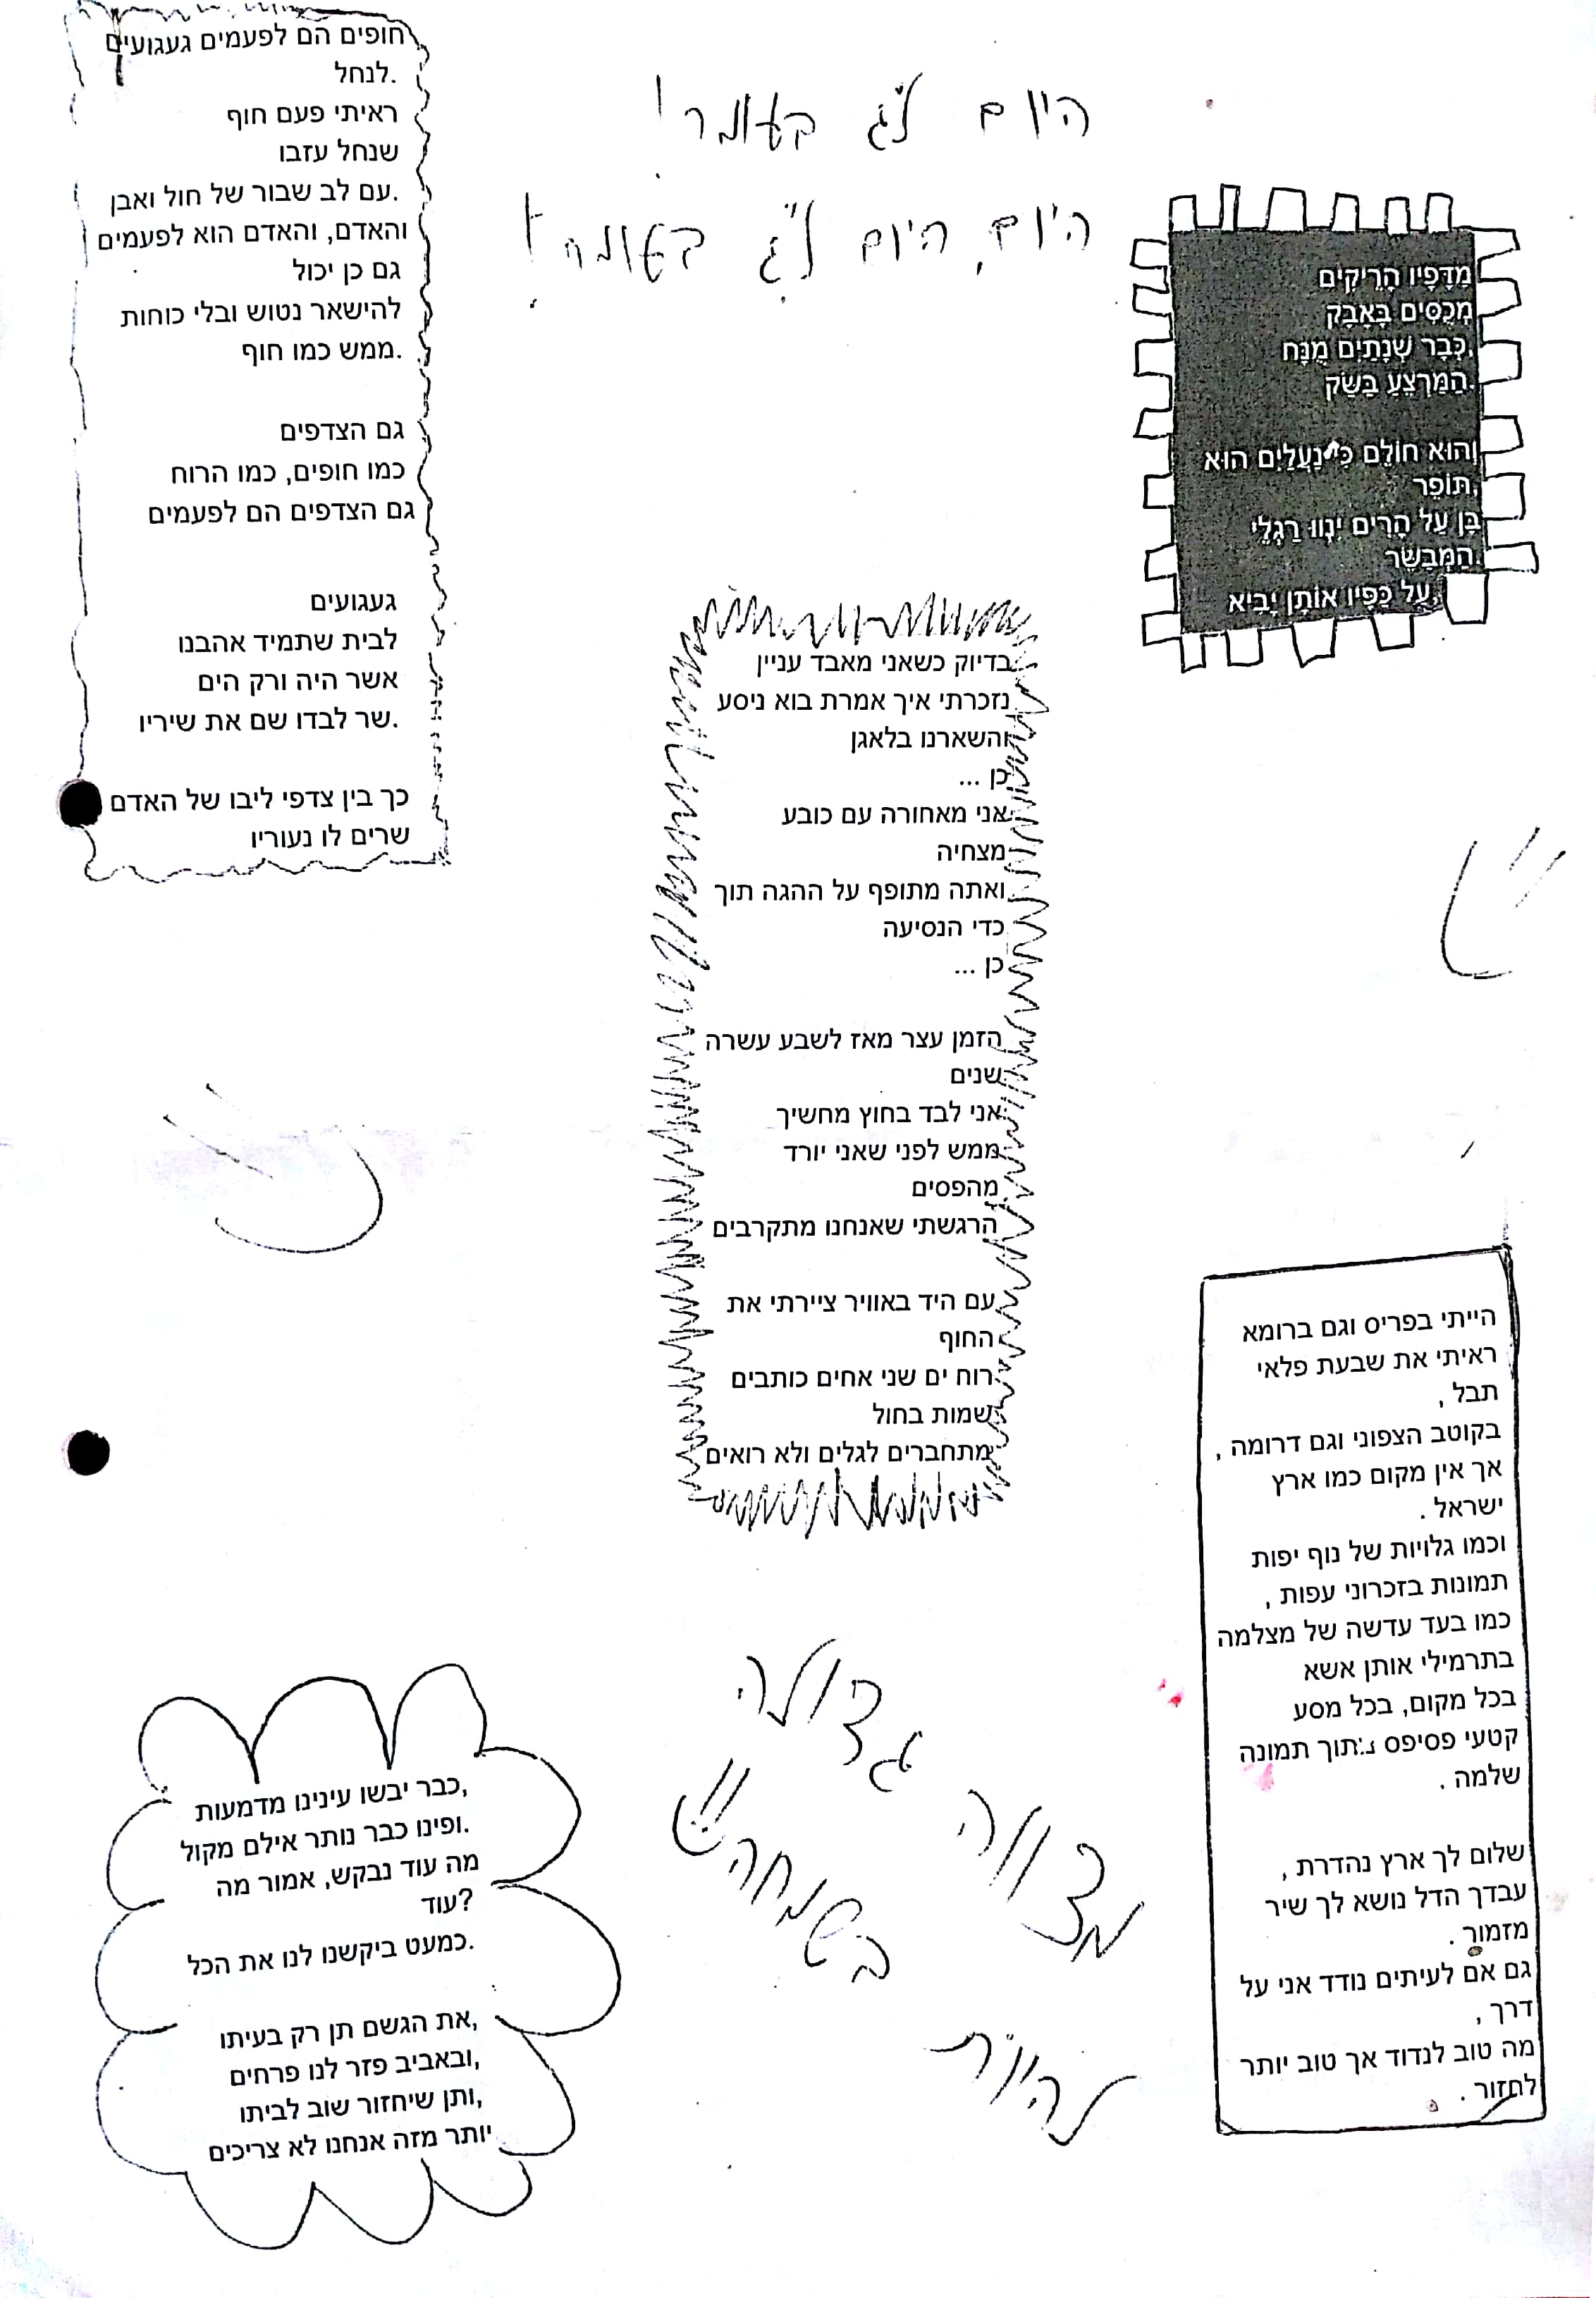 היום ל"ג בעומר!
היום, היום ל"ג בעומר!
מַדָּפָיו הָרֵיקִים
מְכֻסִּים בָּאָבָק
כְּבָר שְׁנָתַיִם מֻנָּח,
הַמַּרְצֵעַ בַּשַּׂק.
וְהוּא חוֹלֵם כִּי נַעֲלַיִם הוּא
תּוֹפֵר,
בָּן עַל הָרִים יִנְווּ רַגְלֵי
הַמְבַשֵּׂר.
עַל כַּפָּיו אוֹתָן יָבִיא
חופים הם לפעמים געגועים
לנחל.
ראיתי פעם חוף
שנחל עזבו
עם לב שבור של חול ואבן.
והאדם, והאדם הוא לפעמים
גם כן יכול
להישאר נטוש ובלי כוחות
ממש כמו חוף.
גם הצדפים
כמו חופים, כמו הרוח
גם הצדפים הם לפעמים
געגועים
לבית שתמיד אהבנו
אשר היה ורק הים
שר לבדו שם את שיריו.
כך בין צדפי ליבו של האדם
שרים לו נעוריו
בדיוק כשאני מאבד עניין
נזכרתי איך אמרת בוא ניסע
והשארנו בלאגן
כן ...
אני מאחורה עם כובע
מצחיה
ואתה מתופף על ההגה תוך
כדי הנסיעה
כן ...
הזמן עצר מאז לשבע עשרה
שנים
אני לבד בחוץ מחשיך
ממש לפני שאני יורד
מהפסים
הרגשתי שאנחנו מתקרבים
עם היד באוויר ציירתי את
החוף
רוח ים שני אחים כותבים
שמות בחול
מתחברים לגלים ולא רואים
הייתי בפריס וגם ברומא
ראיתי את שבעת פלאי
תבל ,
בקוטב הצפוני וגם דרומה ,
אך אין מקום כמו ארץ
ישראל .
וכמו גלויות של נוף יפות
תמונות בזכרוני עפות ,
כמו בעד עדשה של מצלמה
בתרמילי אותן אשא
בכל מקום, בכל מסע
קטעי פסיפס בתוך תמונה
שלמה .
שלום לך ארץ נהדרת ,
עבדך הדל נושא לך שיר
מזמור .
גם אם לעיתים נודד אני על
דרך ,
מה טוב לנדוד אך טוב יותר
לחזור .
מצווה גדולה
להיות בשמחה!!
כבר יבשו עינינו מדמעות,
ופינו כבר נותר אילם מקול.
מה עוד נבקש, אמור מה
עוד?
כמעט ביקשנו לנו את הכל.
את הגשם תן רק בעיתו,
ובאביב פזר לנו פרחים,
ותן שיחזור שוב לביתו,
יותר מזה אנחנו לא צריכים